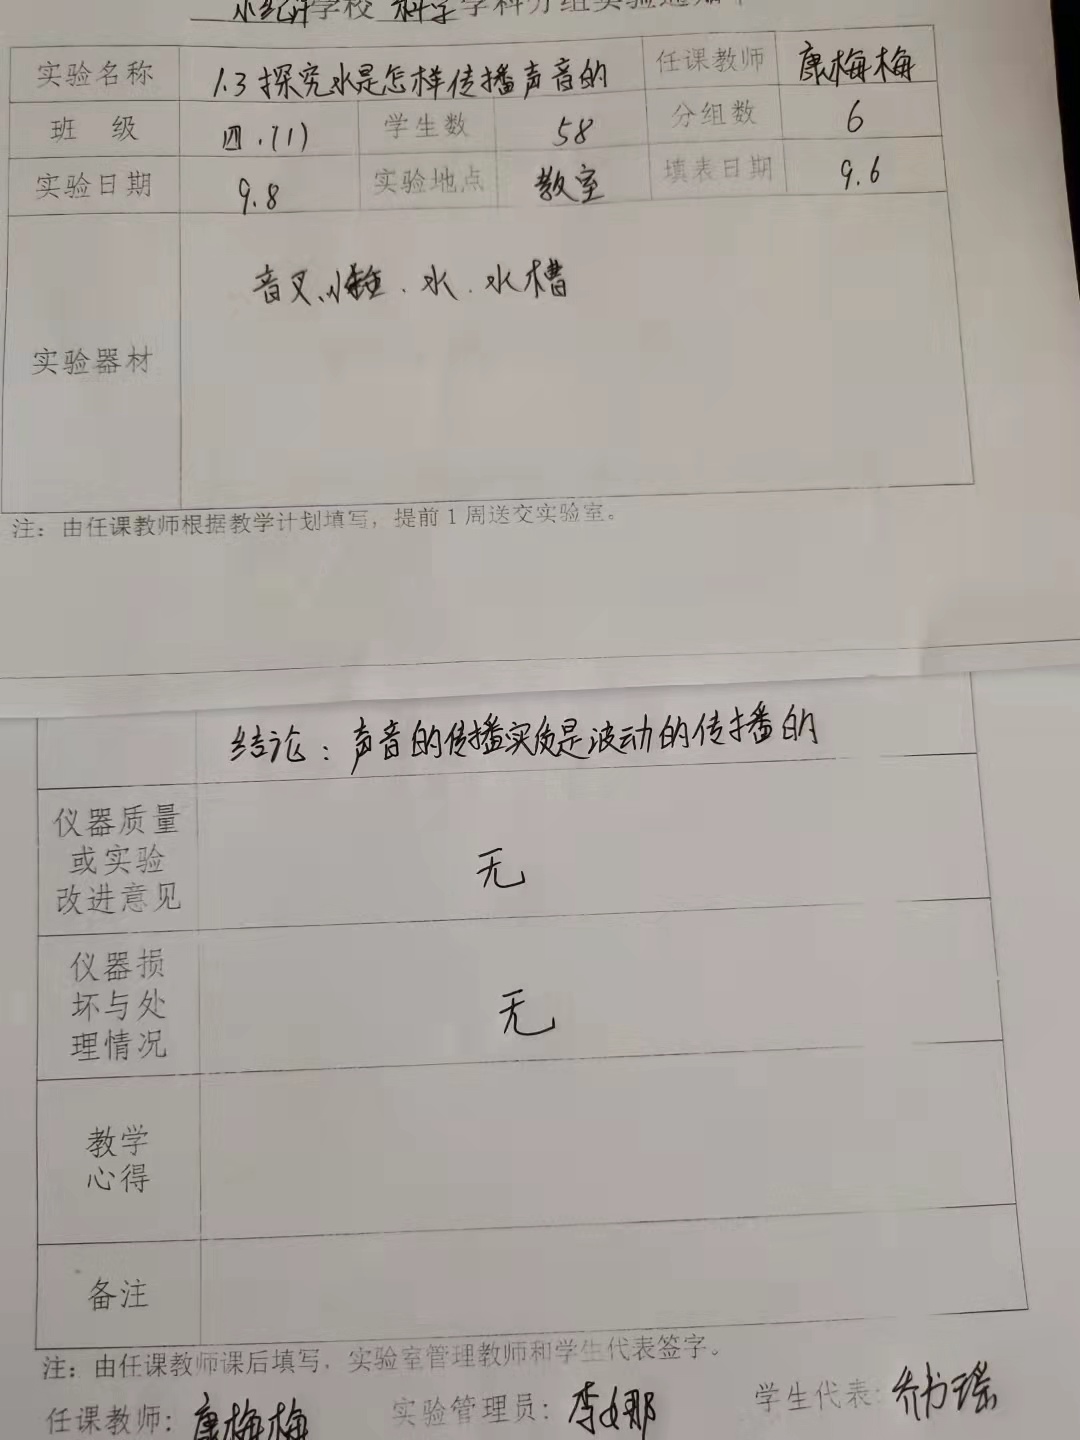 学校 科学学科分组实验通知单
实验名称 1.3探究水是怎样传播声音的 任课教师 康梅梅
班 级 四.(1) 学生数 58 分组数 6
实验日期 9.8 实验地点 教室 填表日期 9.6
实验器材 音叉、小锤.水.水槽
注：由任课教师根据教学计划填写，提前1周送交实验室。
结论：声音的传播实质是波动的传播的
仪器质量
或实验
改进意见 无
仪器损
坏与处
理情况 无
教学
心得
备注
注：由任课教师课后填写，实验室管理教师和学生代表签字。
任课教师：康梅梅 实验管理员：李娜 学生代表：